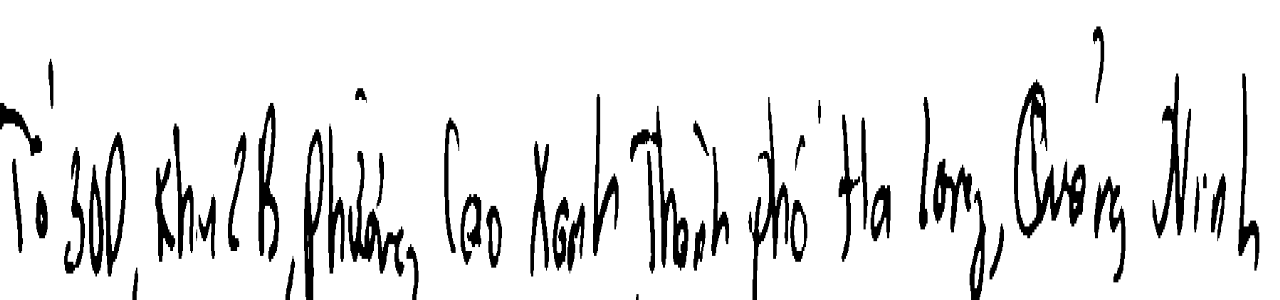 Tổ 30D, Khu 2B, Phường Cao Xanh Thành phố Hạ Long, Quảng Ninh